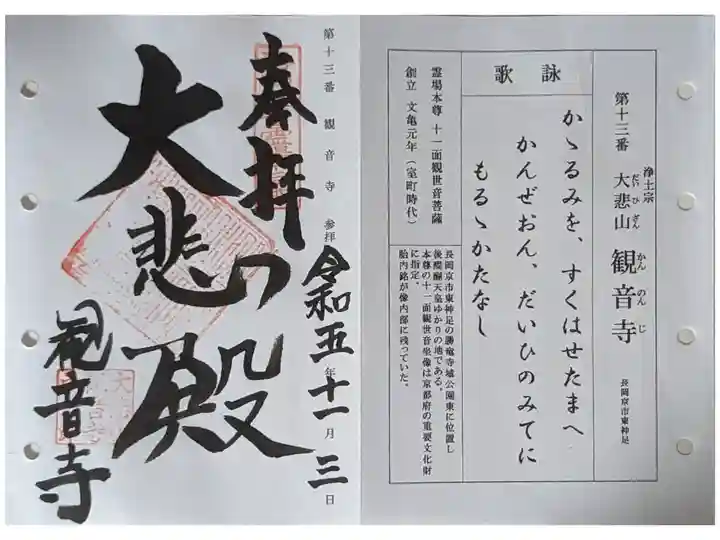 第十三番 浄土宗 大悲山 観音寺 長岡京市東神足
だいひざん
かんのんじ
詠歌
かゝるみを、すくはせたまへ
かんぜおん、だいひのみてに
もるゝかたなし
霊場本尊 十一面観世音菩薩
創立 文亀元年(室町時代)
長岡京市東神足の勝竜寺城公園東に位置し
後醍醐天皇ゆかりの地である。
本尊の十一面観世音坐像は京都府の重要文化財
に指定。
胎内銘が像内部に残っていた。
第十三番 観音寺 参拝 令和五年十一月三日
奉拝
大悲殿
観音寺